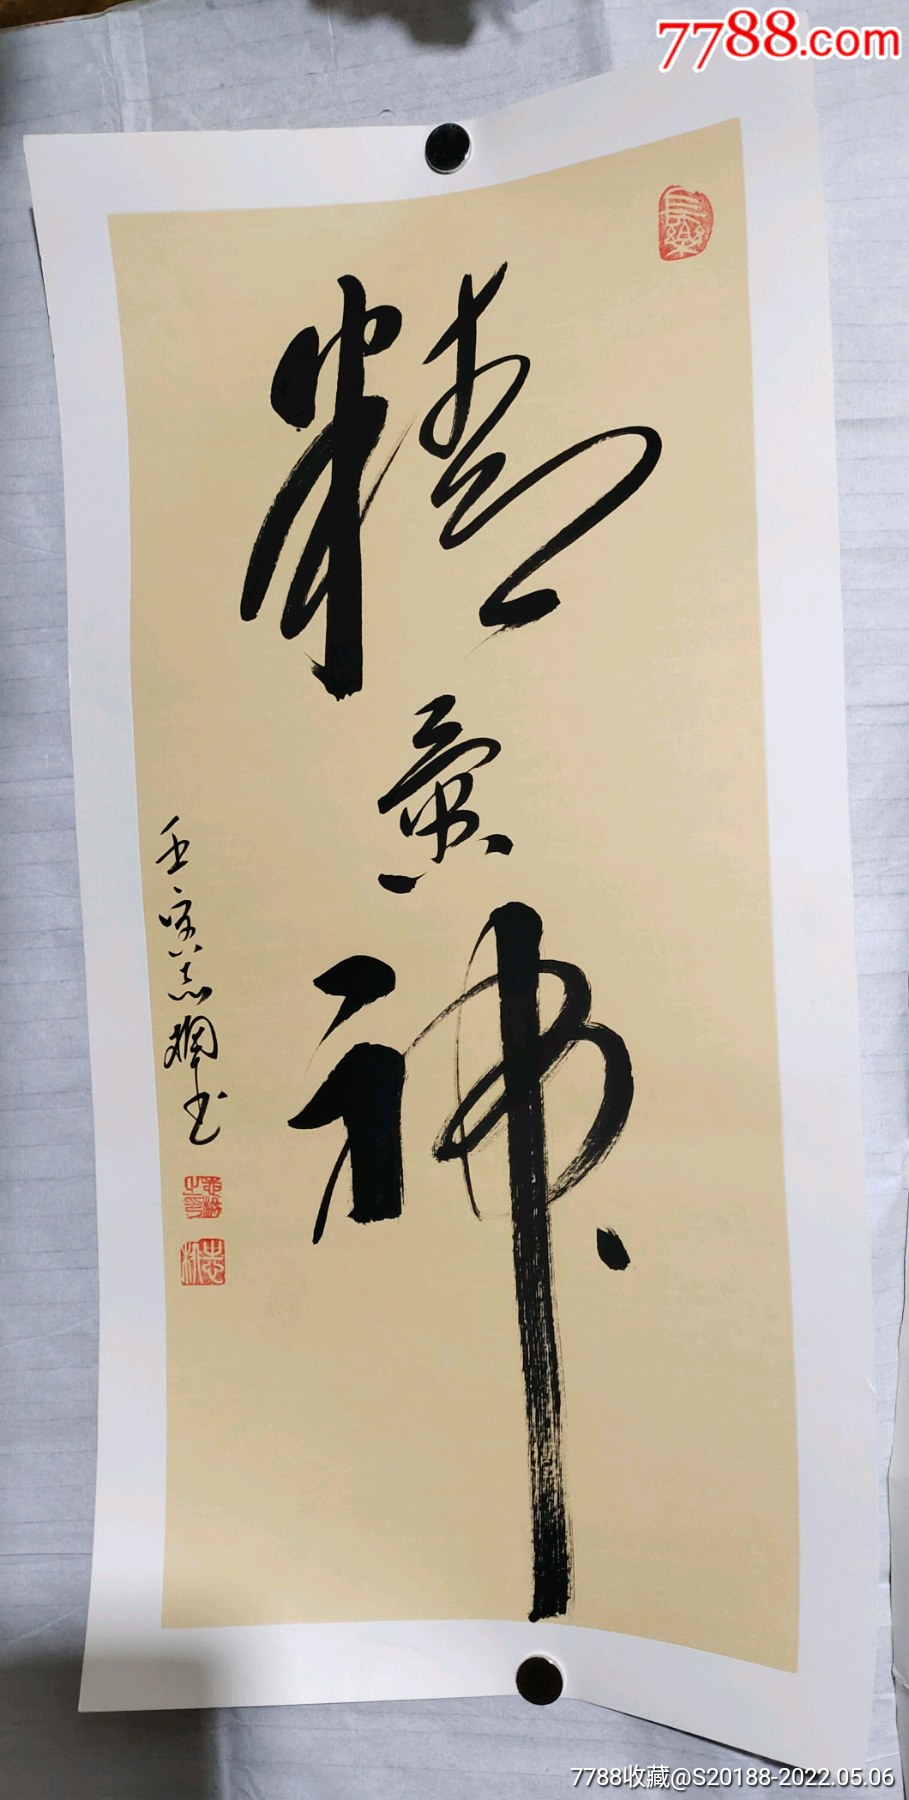 7788.com
長樂
精氣神
壬寅志炯书
7788收藏@S20188-2022.05.06